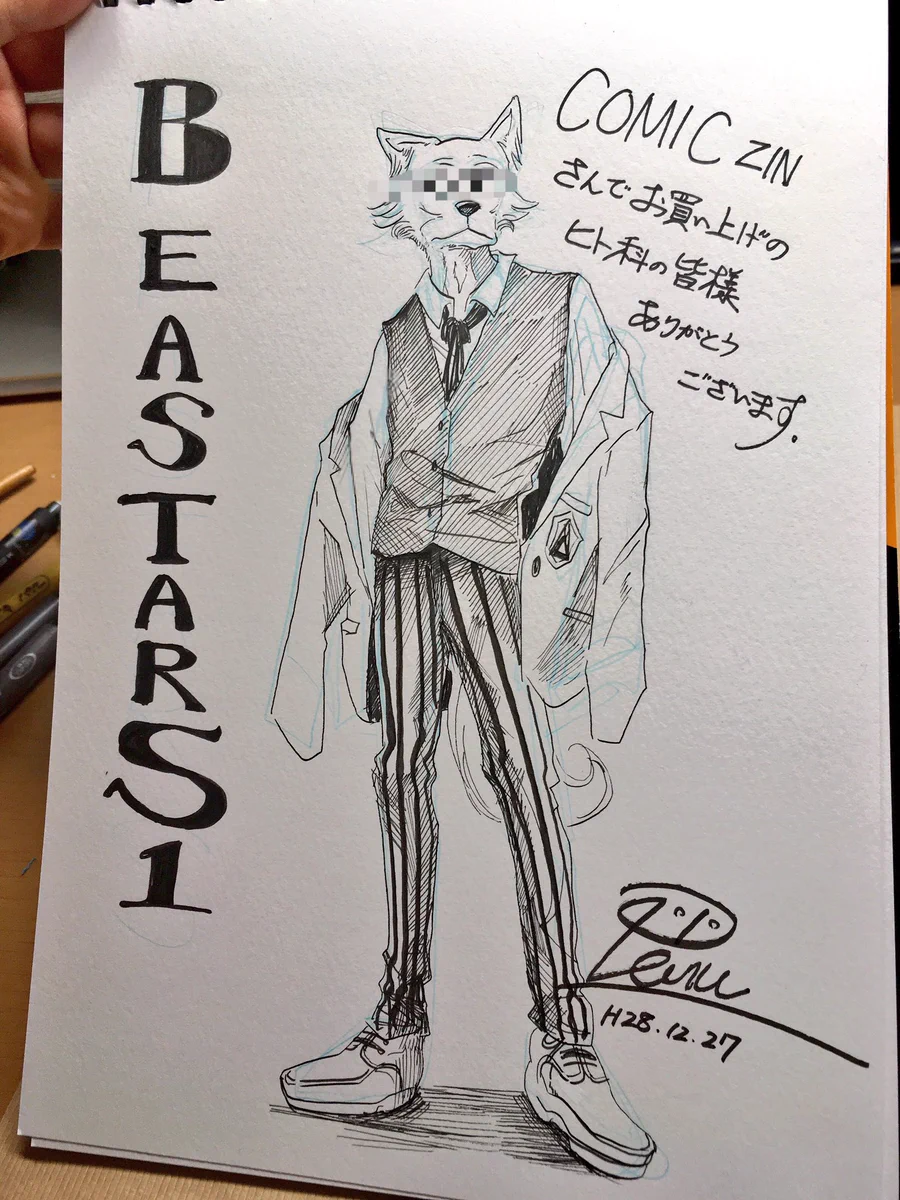 BEASTARS1
COMIC ZIN
さんでお買い上げの
ヒト科の皆様
ありがとう
ございます.
H28.12.27